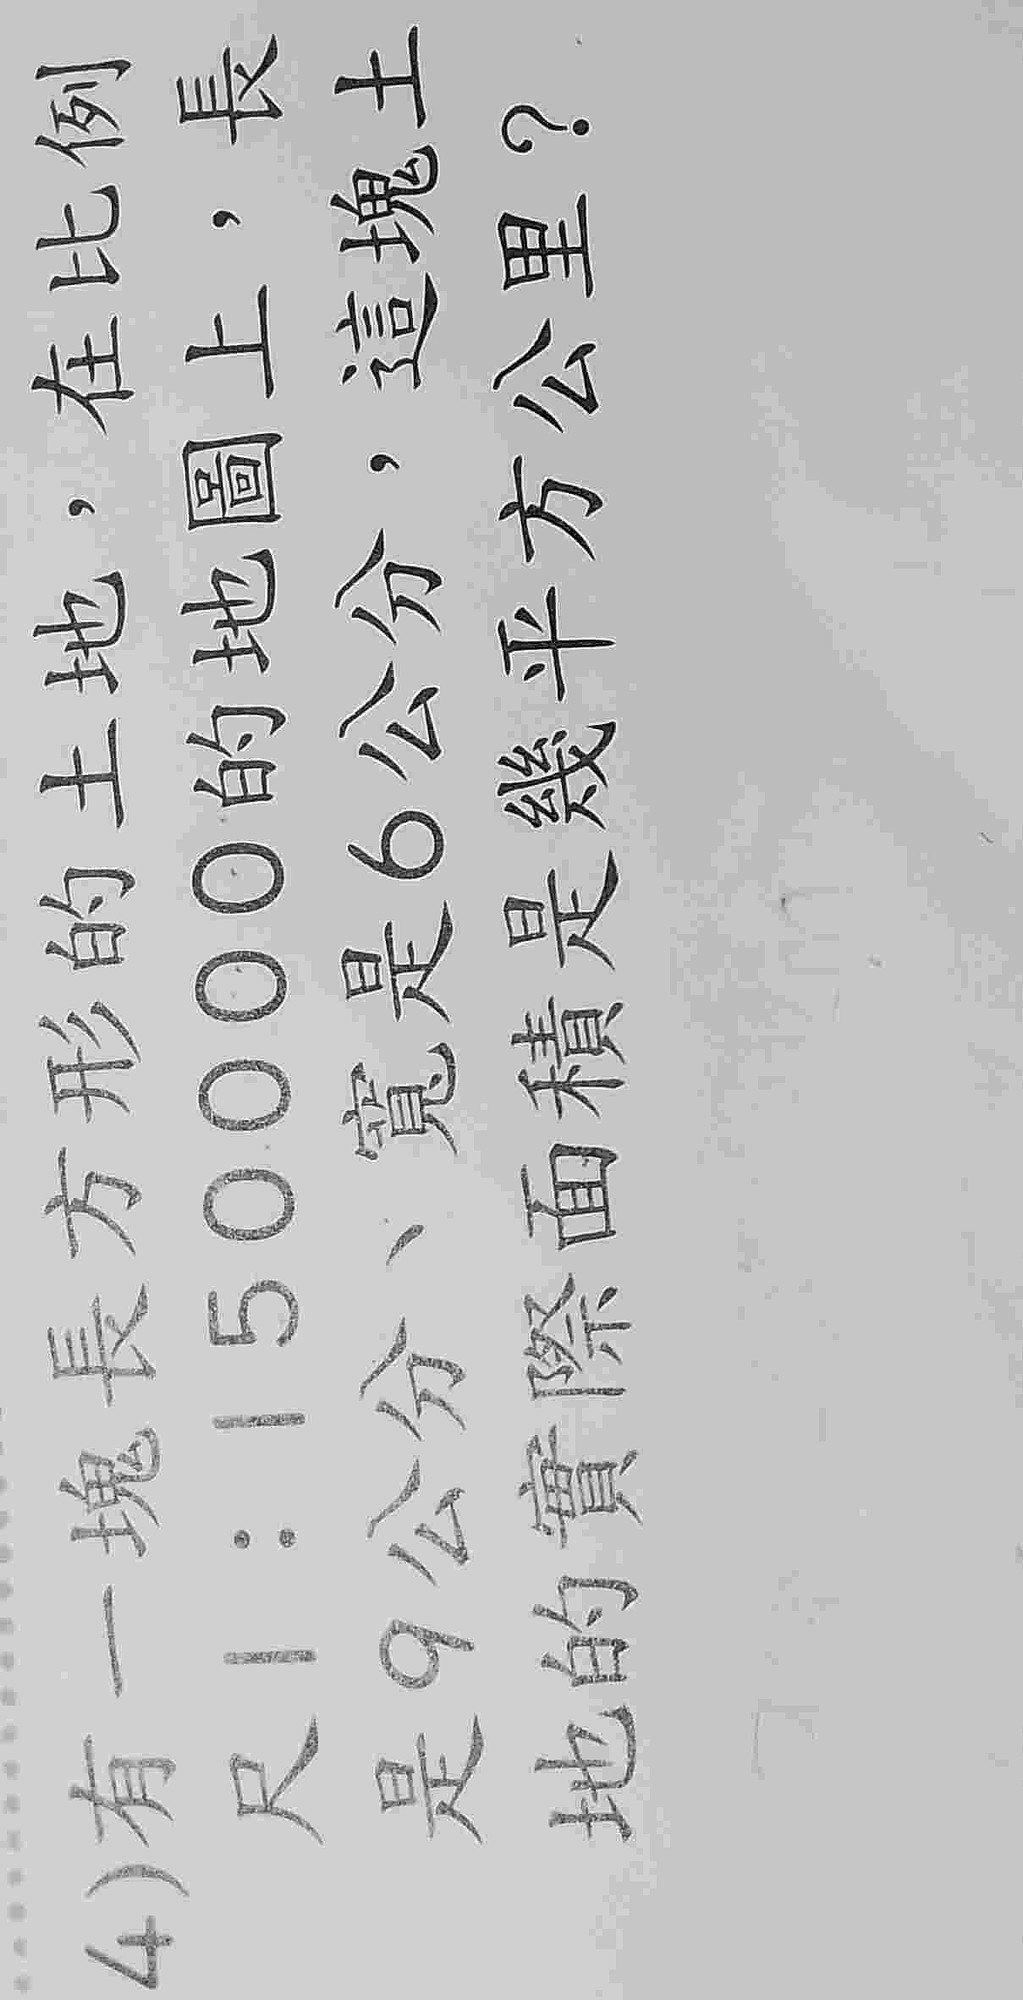 4)有一塊長方形的土地，在比例
尺1：150000的地圖上，長
是9公分、寬是6公分，這塊土
地的實際面積是幾平方公里？